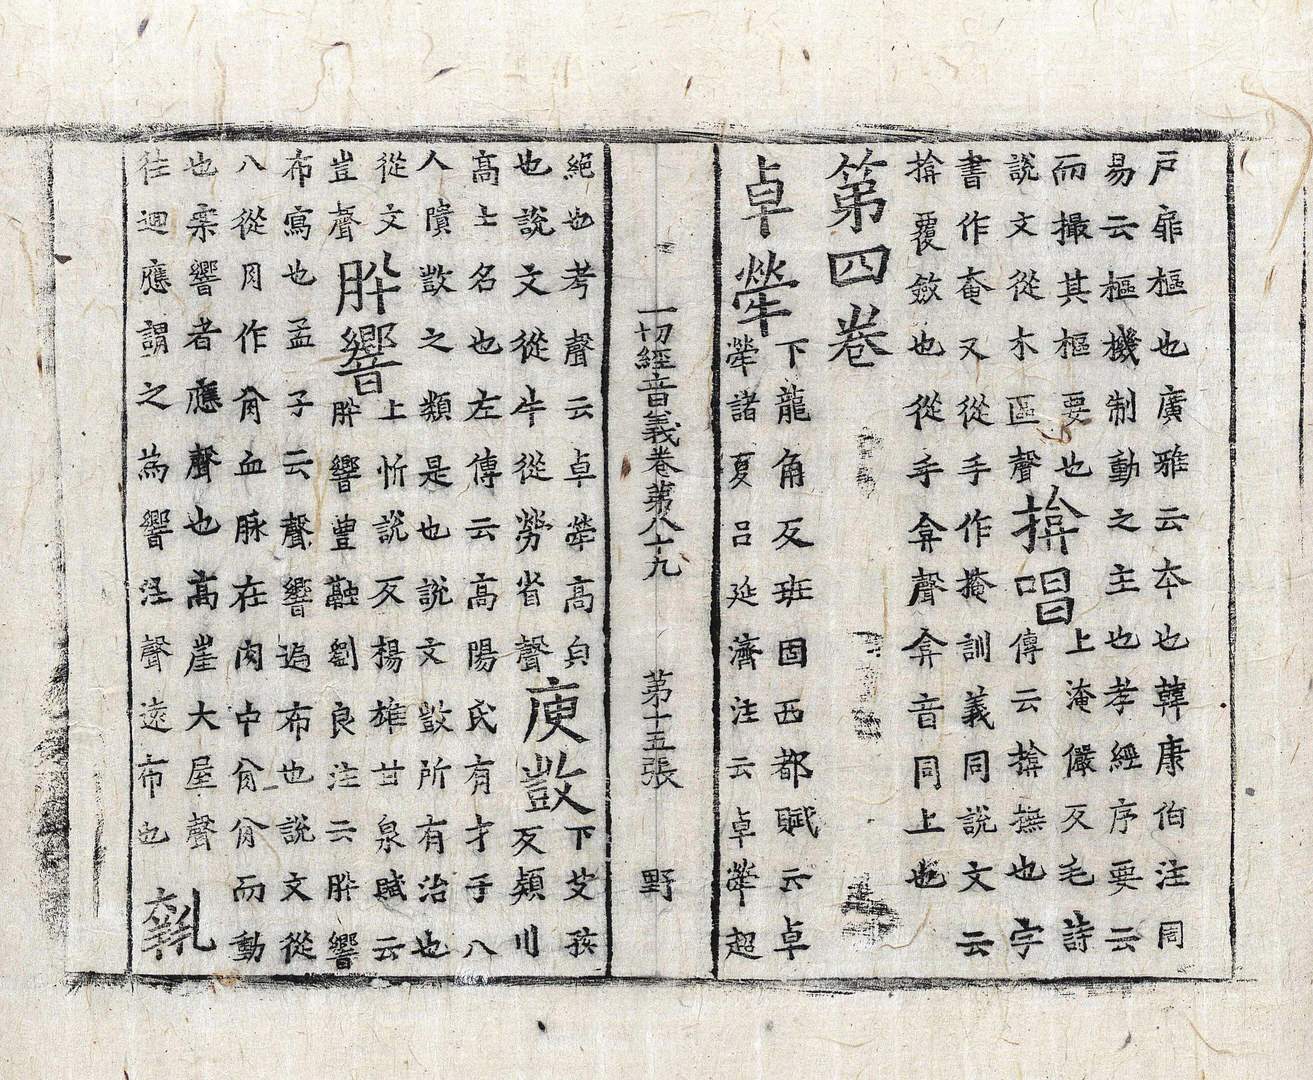 戶扉樞也廣雅云本也韓康伯注周
易云樞機制動之主也孝經序要云
而撮其樞要也
說文從木區聲
揜唱
上淹儼反毛詩
傳云揜撫也字
書作奄又從手作掩訓義同說文云
揜覆斂也從手弇聲弇音同上也
第四卷
卓犖
下龍角反班固西都賦云卓
犖諸夏呂延濟注云卓犖超
一切經音義卷第八十九 第十五張 野
絶也考聲云卓犖高皃
也說文從牛從勞省聲
庾敳
下艾孩
反潁川
高士名也左傳云高陽氏有才子八
人隤敳之類是也說文敳所有治也
從文
豈聲
肸響
上忻說反楊雄甘泉賦云
肸響豊融劉良注云肸響
布寫也孟子云聲響遍布也說文從
八從月作血脉在肉中而動
也案響者應聲也高崖大屋聲
往迴應謂之為響注聲遠布也